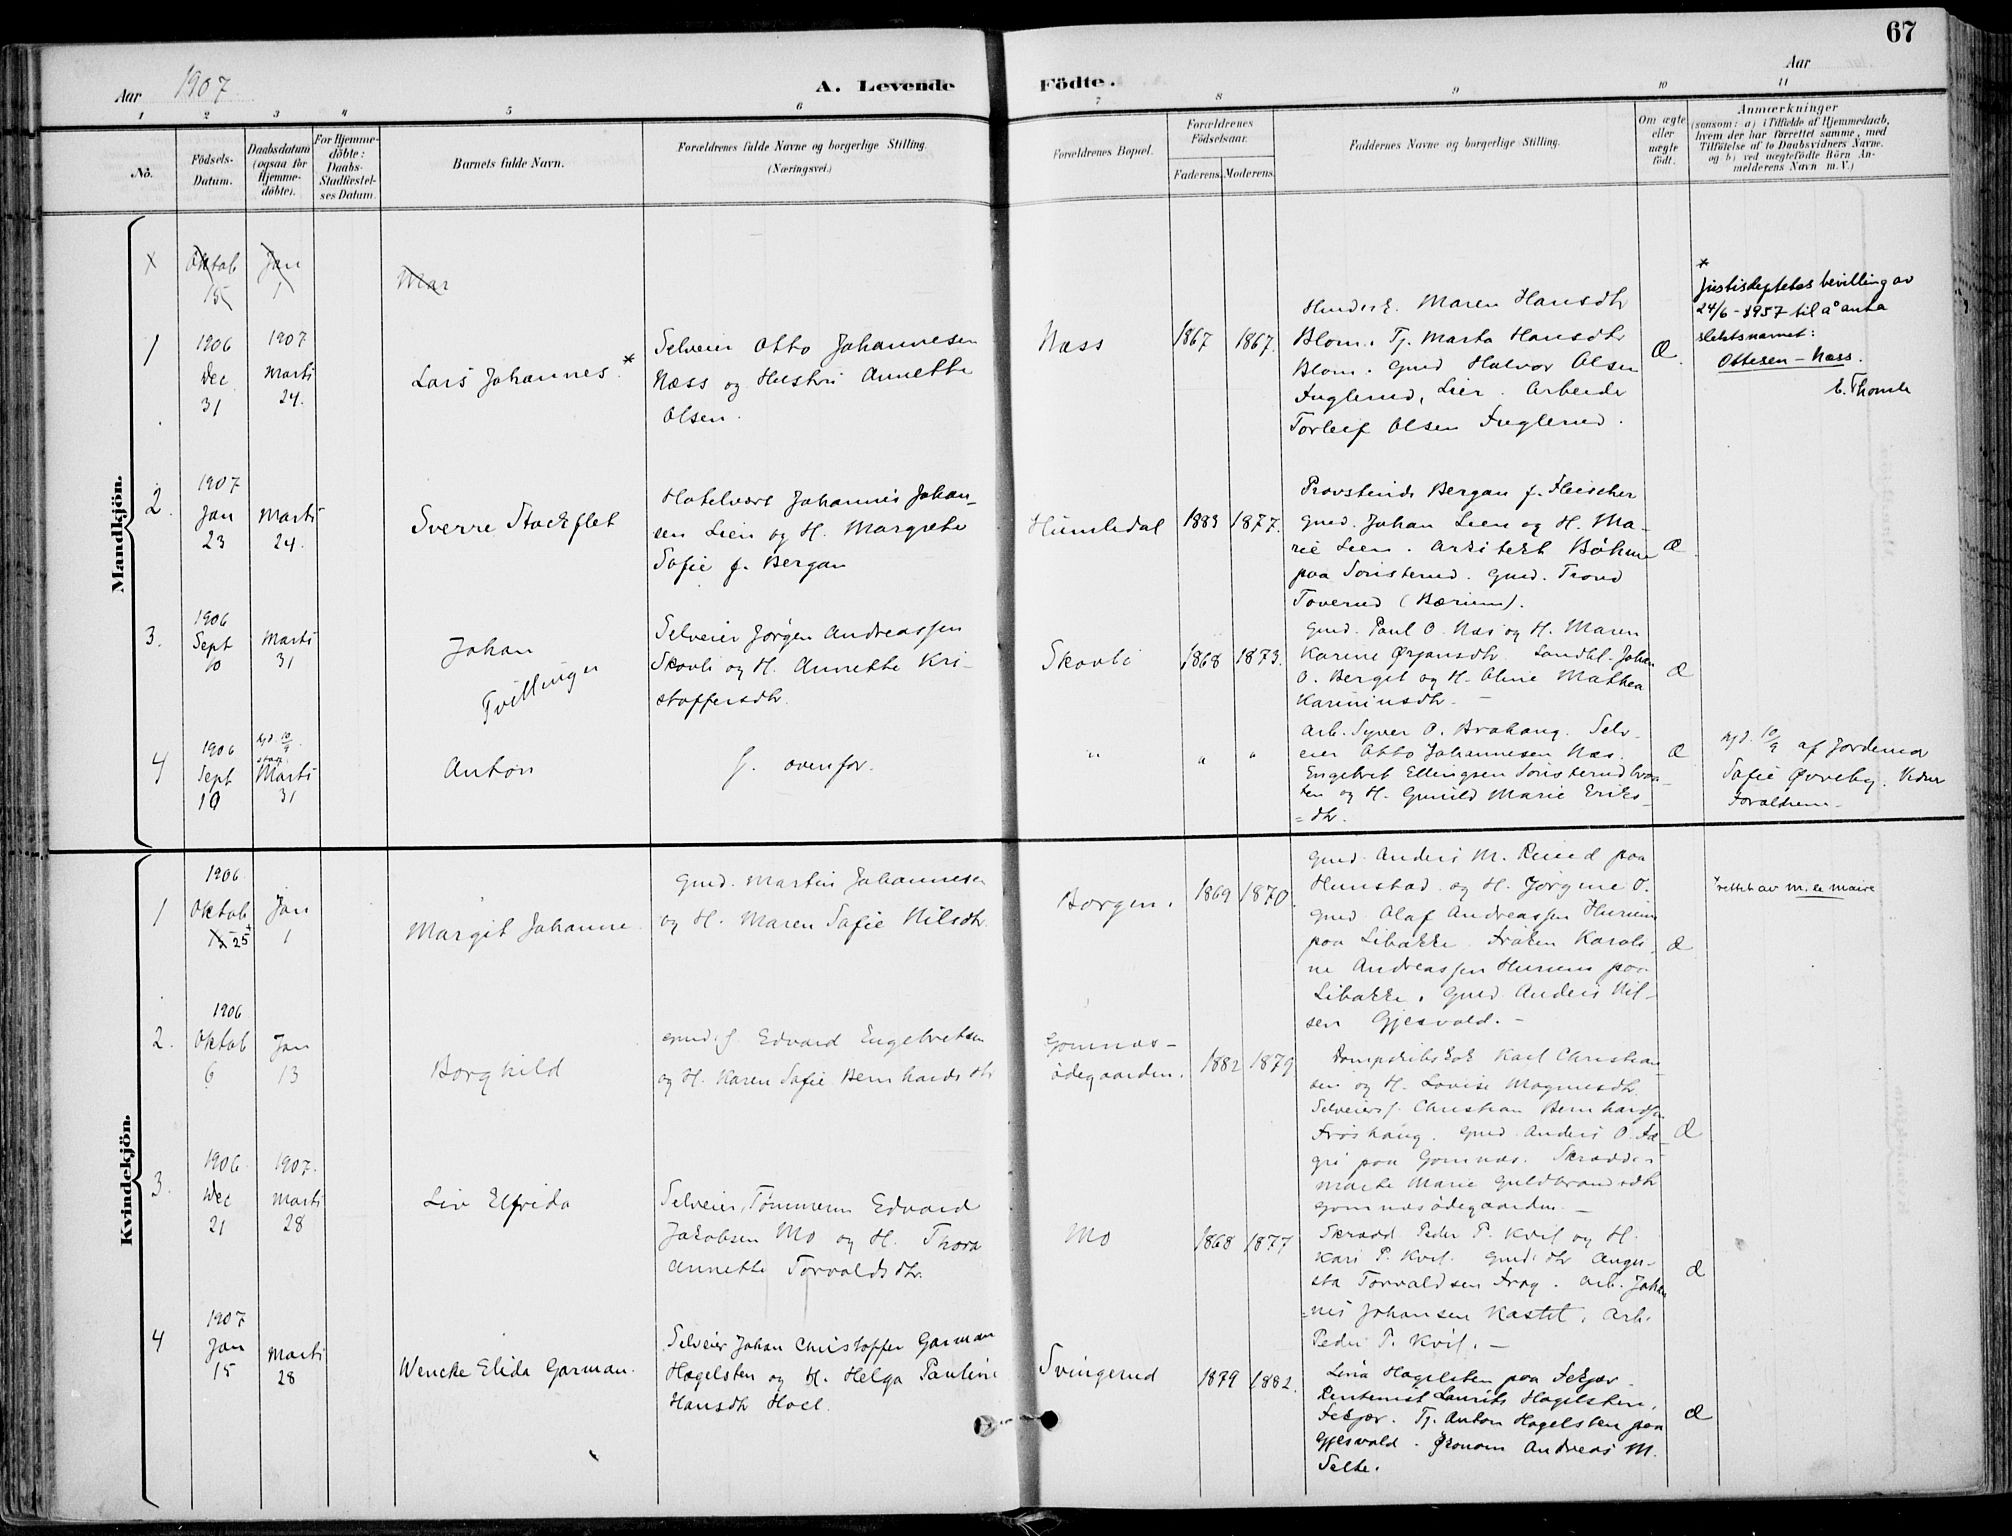 67
Aar 1907
A. Levende Födte.
Aar
1 2 3 4 5 6 7 8 9 10 11
No.
Födsels-
Datum.
Daabsdatum
(ogsaa for
Hjemme-
döbte).
For Hjemme-
döbte:
Daabs-
Stadfæstel-
ses Datum.
Barnets fulde Navn.
Forældrenes fulde Navne og borgerlige Stilling.
(Næringsvei.)
Forældrenes Bopæl.
Forældrenes
Födselsaar.
Faderens. Moderens.
Faddernes Navne og borgerlige Stilling.
Om ægte
eller
uægte
födt.
Anmærkninger
(saasom: a) i Tilfælde af Hjemmedaab,
hvem der har forrettet samme, med
Tilföielse af to Daabsvidners Navne.
og b) ved uægtefödte Börn An-
melderens Navn m. V.)
Mandkjön.
x
Oktob
15
Jan
1
Mar
1
1906
Dec
31
1907
Marts
24.
Lars Johannes. *
Selveier Otto Johannesen
Næss og Hustru Annette
Olsen.
Næss
1867
1867.
Maren Hansdtr
Blom. Tj. Marta Hansdtr
Blom. Gmd Halvor Olsen
Fuglerud, Lier. Arbeider
Torleif Olsen Fuglerud.
Æ.
*
Justisdeptetes bevilling av
24/6-1957 til å anta
slektsnavnet:
Ottesen-Næss.
E. Thomle
2.
1907
Jan
23
Marts
24.
Sverre Stockflet
Hotelvært Johannes Johan-
sen Lien og H. Margrete
Sofie f. Bergan
Humledal
1883
1877.
Provstinde Bergan f. Fleischer
Gmd. Johan Lien og H. Ma-
rie Lien. Arkitekt Böhme
paa Sønsterud. Gmd. Trond
Toverud (Bærum).
Æ
3.
1906
Sept
10
Marts
31
Johan
Tvillinger
Selveier Jørgen Andreassen
Skovli og H. Annette Kri-
stoffersdtr.
Skovli
1868
1873.
Gmd. Paul O. Næs og H. Maren
Karine Ørjansdtr. Landhl. Johan
O. Berget og H. Oline Mathea
Kariniusdtr. –
Æ
4
1906
Sept
10
hjd. 10/9
stad.
Marts
31
Anton
S. ovenfor.
"
"
"
Arb. Syver O. Brahaug. Selv-
eier Otto Johannesen Næs.
Engebret Ellingsen Sønsterudbraa-
ten og H. Gunild Marie Eriks-
=dtr.
Æ
hjd. 10/9 af Jordemor
Sofie Øvreby. Vidner
Forældrene –
Kvindekjön.
1
1906
Oktob
15 25 +
Jan
1
Margit Johanne
Gmd. Martin Johannesen
og H. Maren Sofie Nilsdtr.
Borgen.
1869
1870.
Gmd. Anders M. Ruud paa
Hunstad og H. Jørgine O.
Gmd Olaf Andreassen Hurum
paa Libakke. Frøken Karoli-
ne Andreassen Hurum paa
Libakke. Gmd Anders Nil-
sen Gjesvold. –
Æ
+ rettet av m. le maire
2.
1906
Oktob
6
Jan
13
Borghild
Gmd. s. Edvard Engebretsen
og H. Karen Sofie Bernhardsdtr
Gomnæs-
ødegaarden.
1882
1879
Dampskibskok Karl Christian-
sen og H. Lovise Magnusdtr.
Selveiers. Christian Bernhardsen
Frøshaug. Gmd Anders O. Fæ-
gri paa Gomnæs. Skrædder
Marte Marie Guldbrandsdtr
Gomnæsødegaarden. –
Æ
3.
1906
Dec
21
1907.
Marts
28
Liv Elfrida
Selveier, Tømmerm Edvard
Jakobsen Mo og H. Thora
Annette Torvaldsdtr.
Mo
1868
1877
Skrædd Peder P. Kvil og H.
Kari P. Kvil. Gmds dtr Augu-
sta Torvaldsen Frog. Arb. Johan
=nes Johansen Kastet. Arb.
Peder P. Kvil. –
Æ
4
1907
Jan
15
Marts
28
Wencke Elida Garman.
Selveier Johan Christoffer Garman
Hagelsten og H. Helga Pauline
Hansdtr Hoel.
Svingerud
1879
1882.
Lina Hagelsten paa Fekjær.
Rentenist Laurits Hagelsten,
Fekjær. Tj. Anton Hagelsten paa
Gjesvold. Økonom Andreas M.
Selte.
Æ